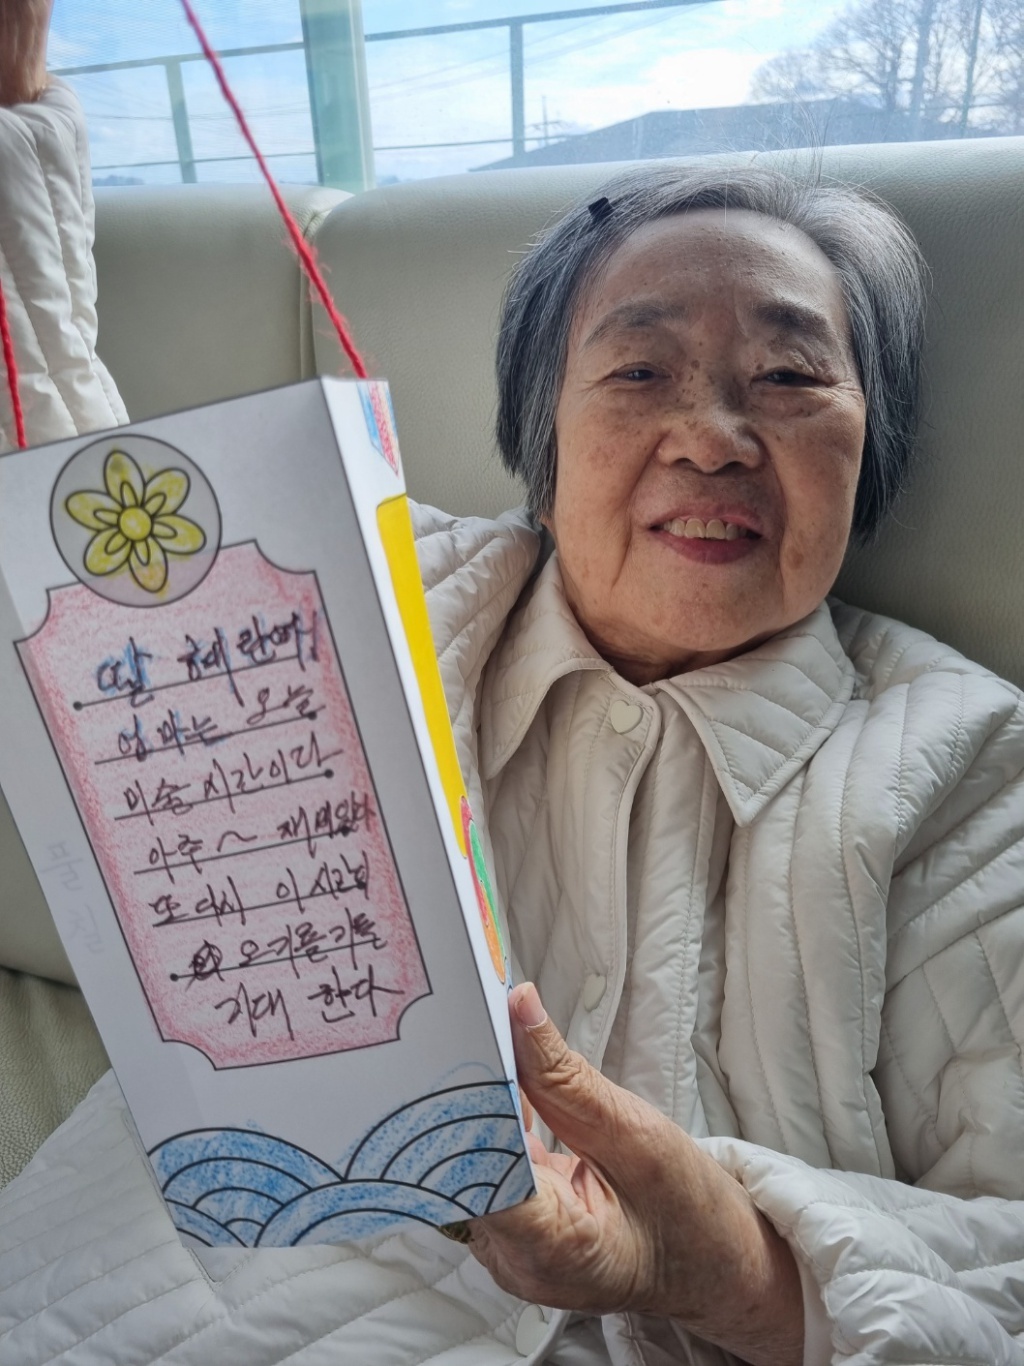 딸 혜란에게
엄마는 오늘
미술시간이다
아주~ 재미있다
또다시 이 시간이
오기를 기틀
기대 한다